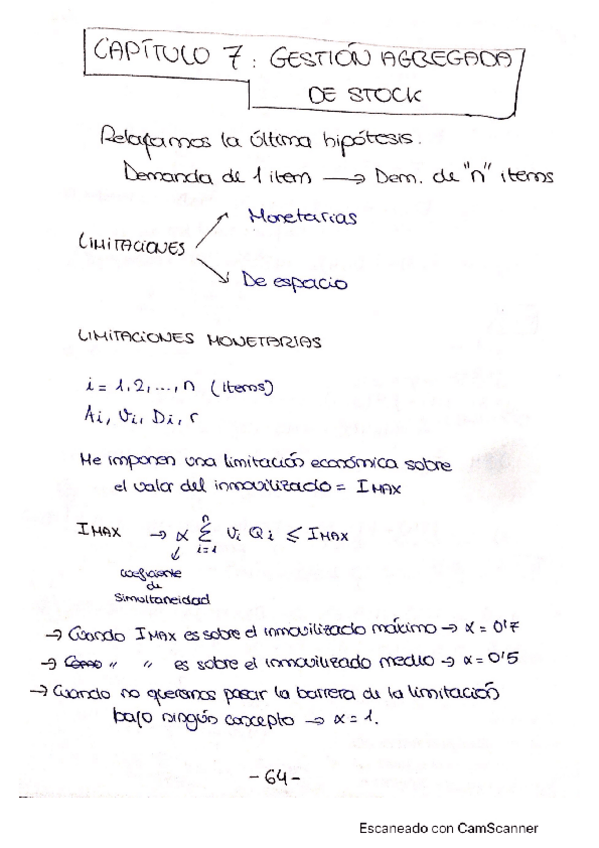 CAPÍTULO 7: GESTIÓN AGREGADA
DE STOCK
Relajamos la última hipótesis.
Demanda de 1 item → Dem. de "n" items
Monetarias
LIMITACIONES
De espacio
LIMITACIONES MONETARIAS
i = 1, 2, ..., n (items)
Ai, Vi, Di, r
Me imponen una limitación económica sobre
el valor del inmovilizado = IMAX
IMAX → α Σ Vi Qi ≤ IMAX
n
i=1
coeficiente
de
simultaneidad
→ Cuando IMAX es sobre el inmovilizado máximo → α = 0'7
→ " " es sobre el inmovilizado medio → α = 0'5
→ Cuando no queramos pasar la barrera de la limitación
bajo ningún concepto → α = 1.
- 64 -
Escaneado con CamScanner